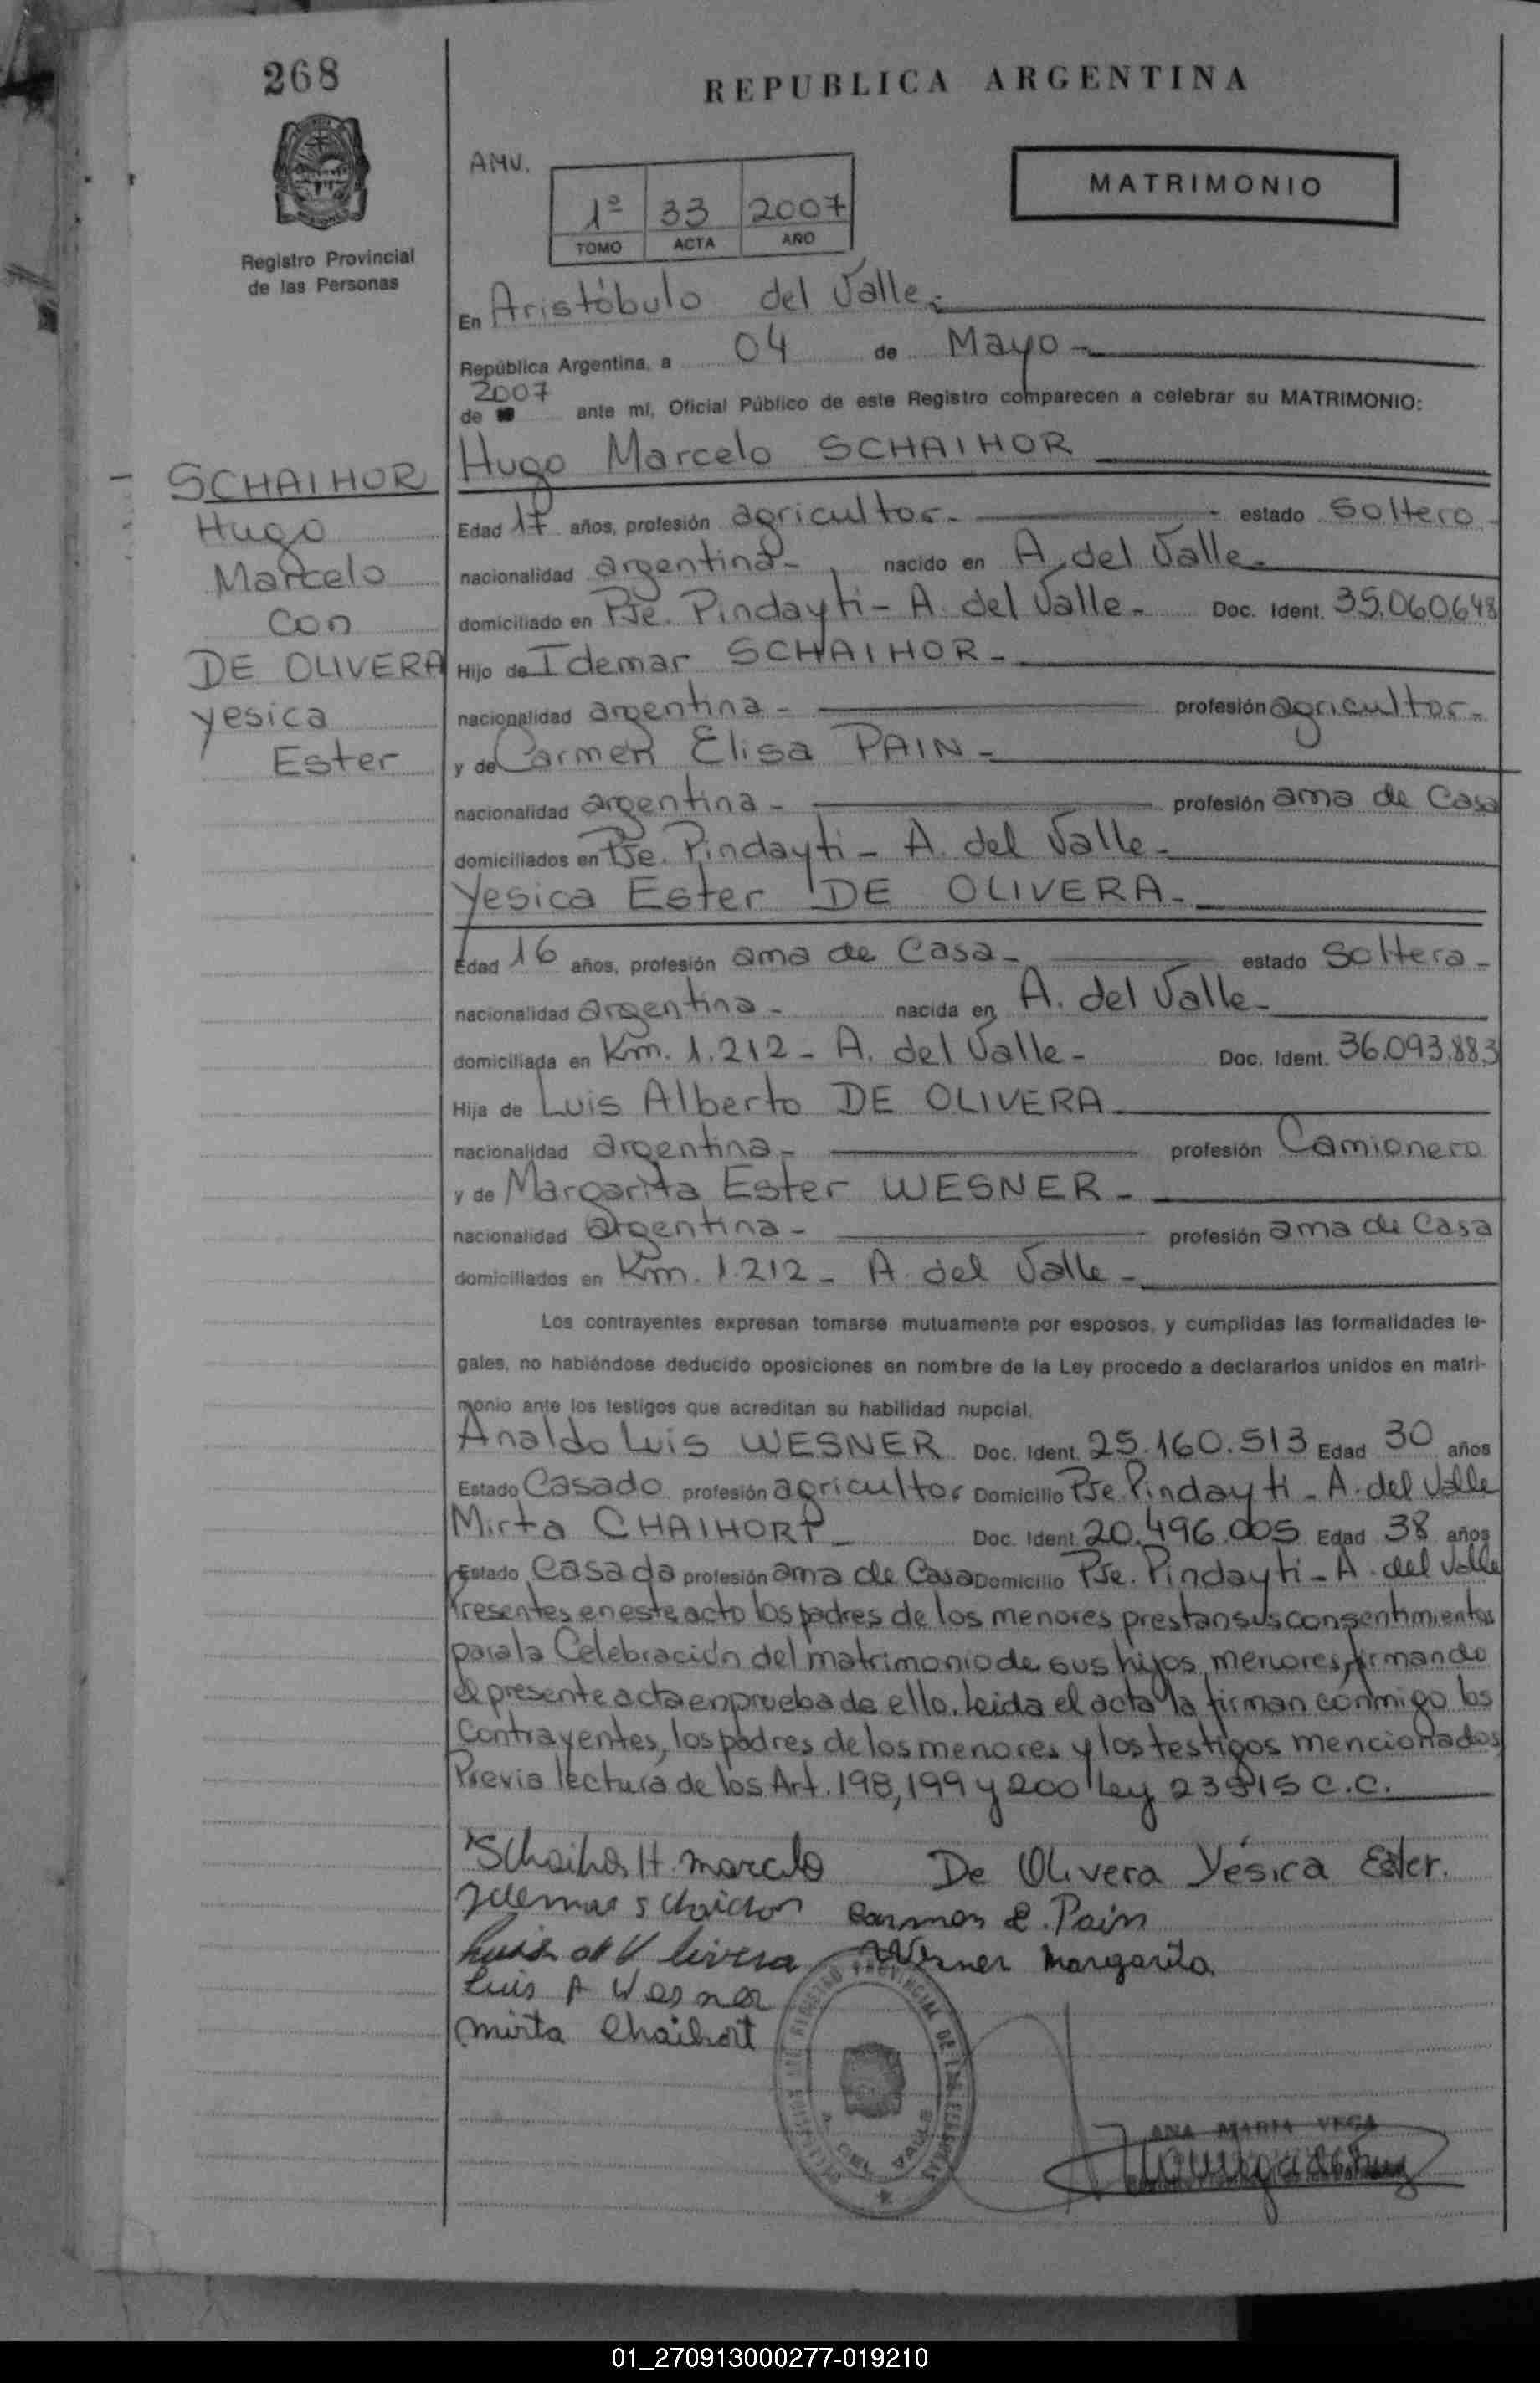 268
REPUBLICA ARGENTINA
AMV.
1º 33 2007
TOMO ACTA AÑO
MATRIMONIO
Registro Provincial
de las Personas
En Aristóbulo del Valle.
República Argentina, a 04 de Mayo -
2007
de ante mí, Oficial Público de este Registro comparecen a celebrar su MATRIMONIO:
Hugo Marcelo SCHAIHOR
SCHAIHOR
Hugo
Marcelo
con
DE OLIVERA
Yesica
Ester
Edad 17 años, profesión agricultor.- estado Soltero -
nacionalidad argentina- nacido en A. del Valle.
domiciliado en Pje. Pindayti - A. del Valle. Doc. Ident. 35.060.648
Hijo de Idemar SCHAIHOR -
nacionalidad argentina - profesión agricultor.
y de Carmen Elisa PAIN -
nacionalidad argentina - profesión ama de Casa
domiciliados en Pje. Pindayti - A. del Valle -
Yesica Ester DE OLIVERA -
Edad 16 años, profesión ama de Casa - estado Soltera -
nacionalidad argentina - nacida en A. del Valle -
domiciliada en Km. 1.212 - A. del Valle - Doc. Ident. 36.093.883
Hija de Luis Alberto DE OLIVERA
nacionalidad argentina - profesión Camionero
y de Margarita Ester WESNER -
nacionalidad argentina - profesión ama de Casa
domiciliados en Km. 1.212 - A. del Valle -
Los contrayentes expresan tomarse mutuamente por esposos, y cumplidas las formalidades le-
gales, no habiéndose deducido oposiciones en nombre de la Ley procedo a declararlos unidos en matri-
monio ante los testigos que acreditan su habilidad nupcial.
Analdo Luis WESNER Doc. Ident. 25.160.513 Edad 30 años
Estado Casado profesión agricultor Domicilio Pje. Pindayti - A. del Valle
Mirta CHAIHORT - Doc. Ident. 20.496.005 Edad 38 años
Estado Casada profesión ama de Casa Domicilio Pje. Pindayti - A. del Valle
Presentes en este acto los padres de los menores prestan sus consentimientos
para la Celebración del matrimonio de sus hijos menores, firmando
el presente acta en prueba de ello. Leida el acta la firman conmigo los
Contrayentes, los padres de los menores y los testigos mencionados
Previa lectura de los Art. 198, 199 y 200 Ley 23515 C.C.
Schaihor H. marcelo De Olivera Yésica Ester.
Idemar Schaihor Carmen E. Pain
Luis Wesner Margarita
Luis A Wesner
mirta Chaihort
REGISTRO PROVINCIAL DE LAS PERSONAS
ANA MARIA VEGA
01_270913000277-019210